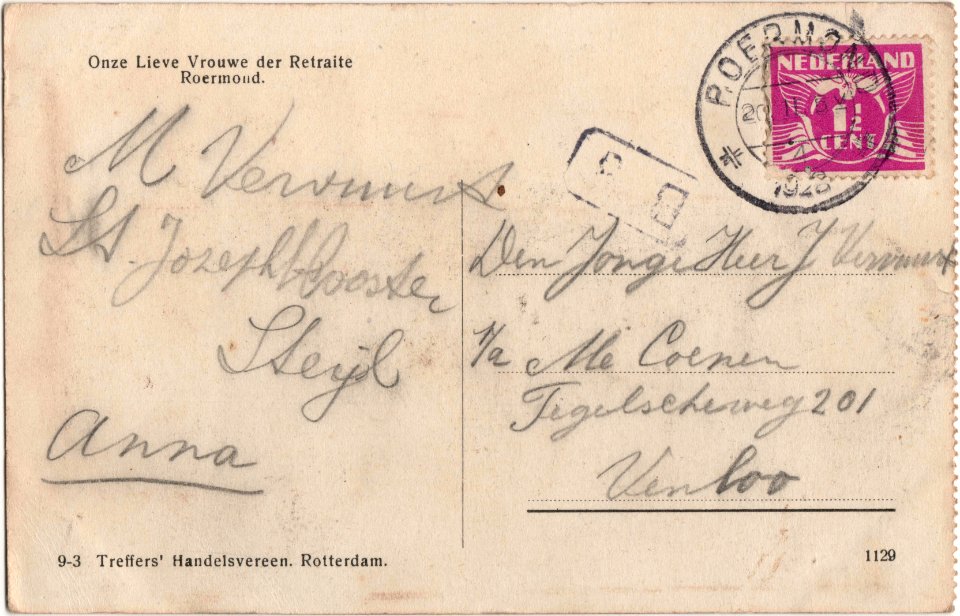 Onze Lieve Vrouwe der Retraite
Roermond.
M Vervuurt
St. Jozephklooster
Steijl
Anna
9-3 Treffers' Handelsvereen. Rotterdam.
ROERMOND
1928
NEDERLAND
1½
CENT
Den Jonge Heer J Vervuurt
p/a Me Coenen
Tegelscheweg 201
Venloo
1129